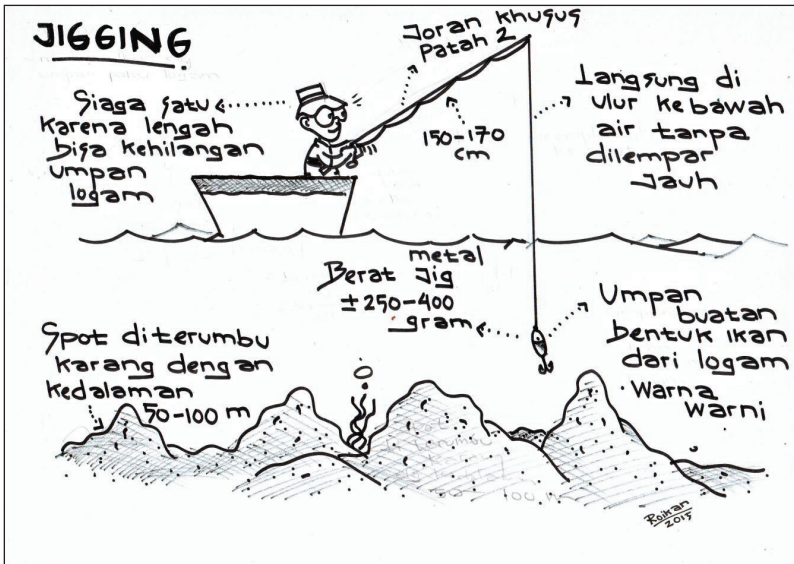 JIGGING
Joran khusus
Patah 2
Siaga satu
karena lengah
bisa kehilangan
umpan
logam
150-170
cm
Langsung di
ulur kebawah
air tanpa
dilempar
Jauh
metal
Berat Jig
±250-400
gram
Umpan
buatan
bentuk ikan
dari logam
Warna
Warni
Spot diterumbu
karang dengan
kedalaman
50-100 m
Roikan
2015